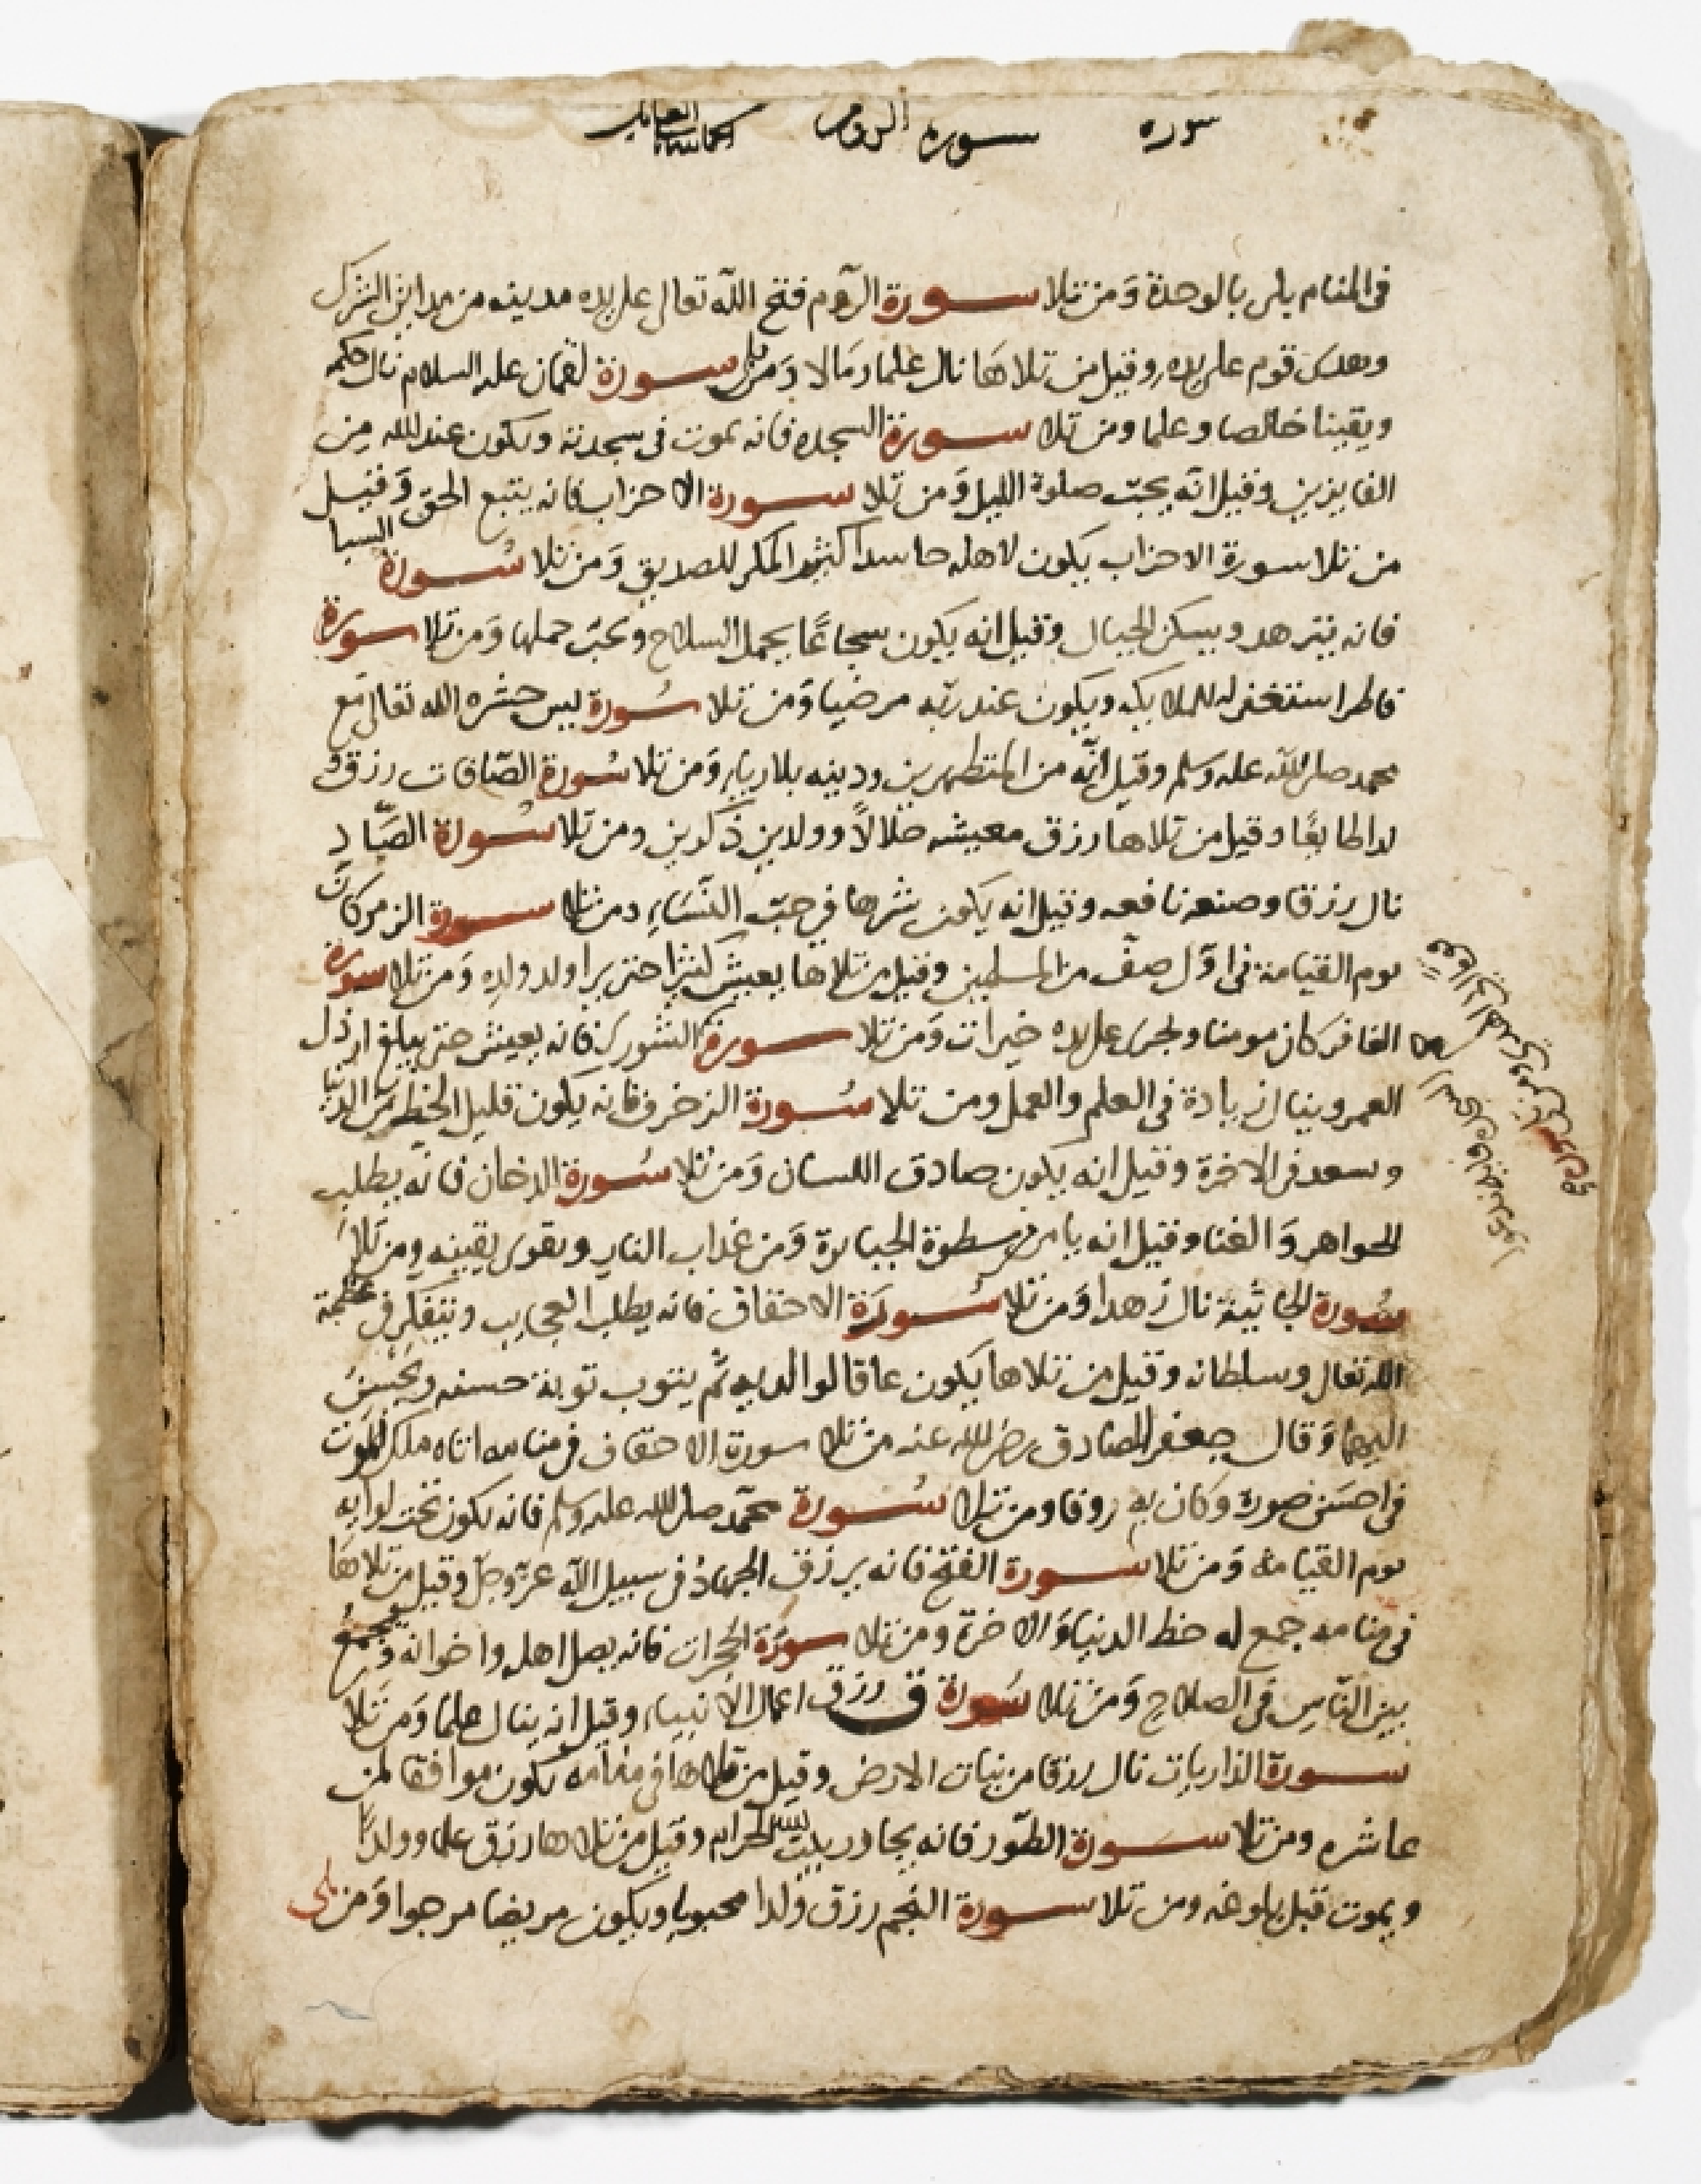 سوره سوره الروم
في المنام بلى بالوحدة وَمن تلا سورة الروم فتح الله تعالى على يده مدينه من مداين الترك
وبهلك قوم على يده وقيل من تلاها نال علما ومالا وَمن تلى سورة لقمان عليه السلام نال حكمه
ويقينا خالصا وعلما ومن تلا سورة السجده فانه يموت في سجدته ويكون عند الله من
الفايزين وقيل انه يحبّ صلوة الليل وَمن تلا سورة الاحزاب فانه يتبع الحق وَقيل
من تلا سورة الاحزاب يكون لاهله حاسدا كثير المكر للصديق وَمن تلا سُورة السبا
فانه يتزهد ويسكن الجبال وقيل انه يكون سجاعًا يحمل السلاح ويحبّ حملها وَمن تلا سورة
فاطر استغفر له الملايكه ويكون عند ربّه مرضيا وَمن تلا سُورة يس حشره الله تعالى مَع
محمد صلى الله عليه وسلم وقيل انّه من المتطهرين ودينه بلا رياءٍ وَمن تلا سُورة الصّافات رزق و
لدا طايعًا وقيل من تلاها رزق معيشه حلالاً وولدين ذكرين ومن تلا سُورة الصَّادِ
نال رزقا وصنعه نافعه وقيل انه يكون شرها في حبّ النّسَاءِ ومن تلا سورة الزمر كانَ
يوم القيامة في اوّل صفّ من المسلمين وقيل من تلاها يعيش كثيرا حتى يرا ولد ولدِه وَمن تلا سورة
الغافر كان مومنا ويجرى على يده خيرات وَمن تلا سورة الشورى فانه يعيش حتى يبلغ ارذل
العمر وينال زيادة في العلم والعمل ومن تلا سُورة الزخرف فانه يكون قليل الحظ من الدنيا
وسعد في الاخرة وقيل انه يكون صادق اللسان وَمن تلا سُورة الدخان فانّه يطلب
الجواهر وَالغنا وقيل انه يا من من سطوة الجبابرة وَمن عذاب النار ويقوى يقينه ومن تلَا
سُورة الجاثية نال زهدا وَمن تلا سُورَة الاحقاف فانه يطلب العجايب ويتفكر في عظمة
الله تعالى وسلطانه وقيل من تلاها يكون عاقا لوالديه ثم يتوب توبة حسنه ويحْسِنُ
اليهما وَقال جعفر الصادق رضى الله عنه من تلا سورة الاحقاف في منامه اتاه ملك الموت
في احسَن صورة وكان به روفا ومن تلا سُورة محمّد صلى الله عليه وسلم فانه يكون تحت لوايه
يوم القيامة وَمن تلا سورة الفتح فانه يرزق الجهادُ في سبيل الله عزّ وجلّ وقيل من تلاهَا
في منامه جمع له حظ الدنيا وَالاخرة ومن تلا سورَة الحُجرات فانه يصل اهله واخوانه وَيجمعُ
بين النّاس في الصلاح وَمن تلا سُورة ق رزق اعمال الانبياء وقيل انه ينال علما وَمن تَلَا
سورة الذاريات نال رزقا من نبات الارض وقيل من تلاها في منامه يكون موافقا لمن
عاشره ومن تلا سورة الطّور فانه يجاور بيت الله الحرام وقيل من تلاها رزق علما وولدا
ويموت قبل بلوغه ومن تلا سورة النجم رزق ولدا محبوبا ويكون مريضا مرجوا وَمن تلى